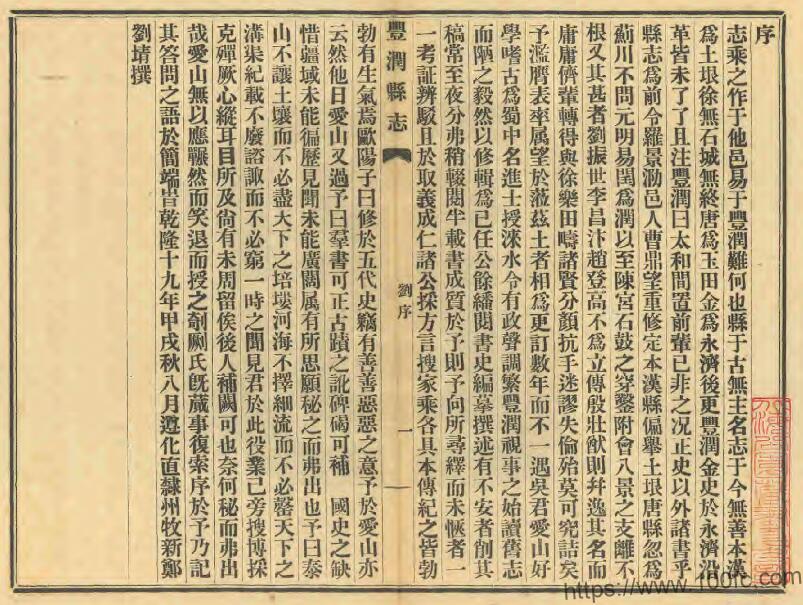 序
志乘之作于他邑易于豐潤難何也縣于古無主名志于今無善本漢
爲土垠徐無石城無終唐爲玉田金爲永濟後更豐潤金史於永濟沿
革皆未了了且注豐潤曰太和間置前輩已非之况正史以外諸書乎
縣志爲前令羅景泐邑人曹鼎望重修定本漢縣偏舉土垠唐縣忽爲
薊川不問元明易閏爲潤以至陳宮石鼓之穿鑿附會八景之支離不
根又其甚者劉振世李昌汴趙登高不爲立傳殷壯猷則幷逸其名而
庸庸儕輩轉得與徐樂田疇諸賢分顏抗手迷謬失倫殆莫可究詰矣
予濫膺表率属望於蒞茲土者相爲更訂數年而不一遇吳君愛山好
學嗜古爲蜀中名進士授淶水令有政聲調繁豐潤視事之始讀舊志
而陋之毅然以修輯爲已任公餘繙閱書史編摹撰述有不安者削其
稿常至夜分弗稍輟閱半載書成質於予則予向所尋繹而未愜者一
一考証辨駁且於取義成仁諸公採方言搜家乘各具本傳紀之皆勃
豐潤縣志
劉序
一
勃有生氣焉歐陽子曰修於五代史竊有善善惡惡之意予於愛山亦
云然他日愛山又過予曰羣書可正古蹟之訛碑碣可補 國史之缺
惜疆域未能徧歷見聞未能廣闊属有所思願秘之而弗出也予曰泰
山不讓土壤而不必盡天下之培塿河海不擇細流而不必罄天下之
溝渠紀載不廢諮諏而不必窮一時之聞見君於此役業已旁搜博採
克殫厥心縱耳目所及尙有未周留俟後人補闕可也奈何秘而弗出
哉愛山無以應囅然而笑退而授之剞劂氏旣蕆事復索序於予乃記
其答問之語於簡端皆乾隆十九年甲戌秋八月遵化直隸州牧新鄭
劉埥撰
https://www.100fc.com